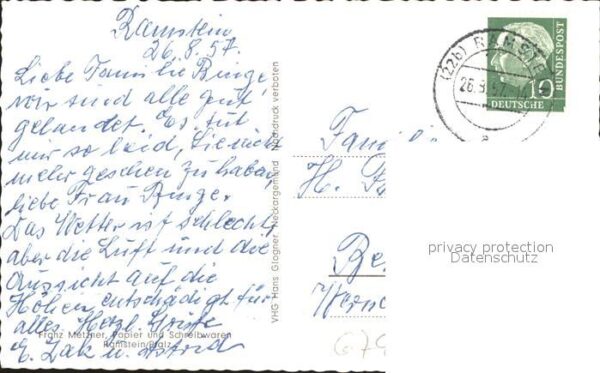 Ramstein
26.8.57.
Liebe Familie Binge,
wir sind alle gut
gelandet. Es tut
mir so leid, Sie nicht
mehr gesehen zu haben,
liebe Frau Binge.
Das Wetter ist schlecht,
aber die Luft und die
Aussicht auf die
Höhen entschädigt für
alles. Herzl. Grüße
E. Zak u. Astrid
Franz Metzner, Papier und Schreibwaren
Ramstein/Pfalz
VHG Hans Glogner Neckargemünd Nachdruck verboten
(22b) RAMSTE
26.8.57
a
10
DEUTSCHE
BUNDESPOST
Fami
H.
Be
privacy protection
Datenschutz